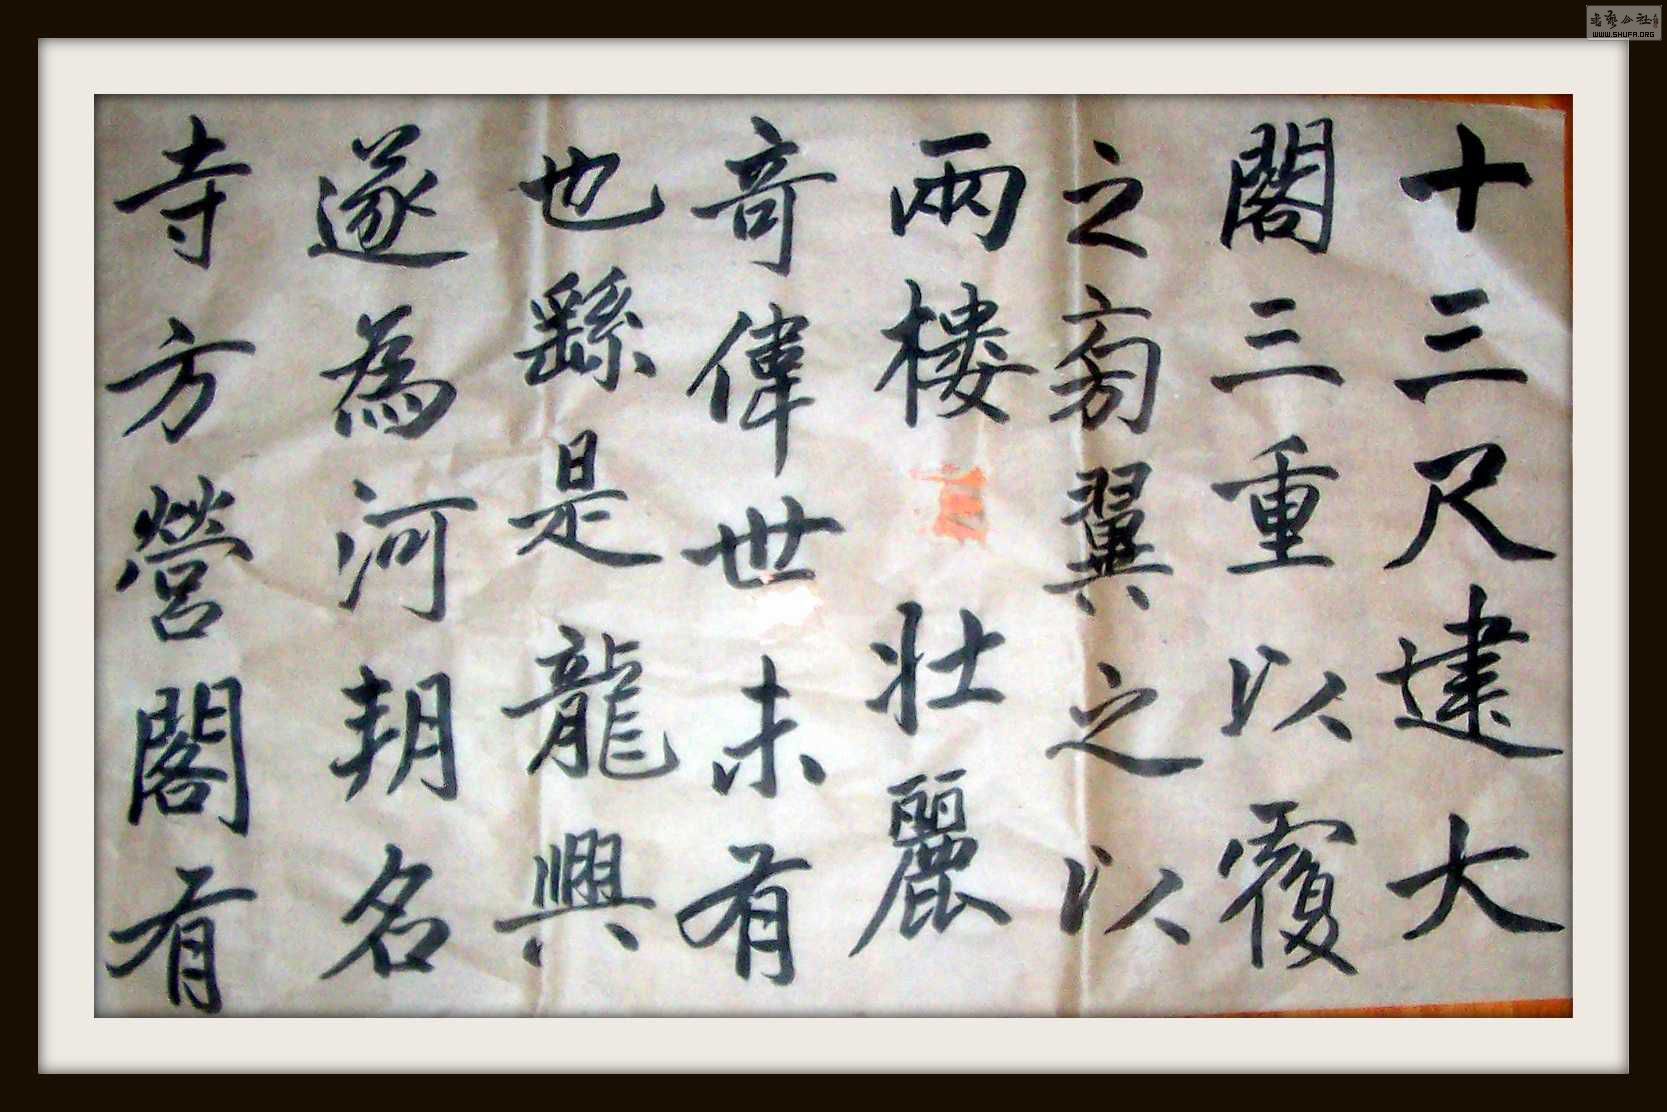 十三尺建大
閣三重以覆
之旁翼之以
兩樓壯麗
奇偉世未有
也繇是龍興
遂為河朔名
寺方營閣有
書藝公社
WWW.SHUFA.ORG